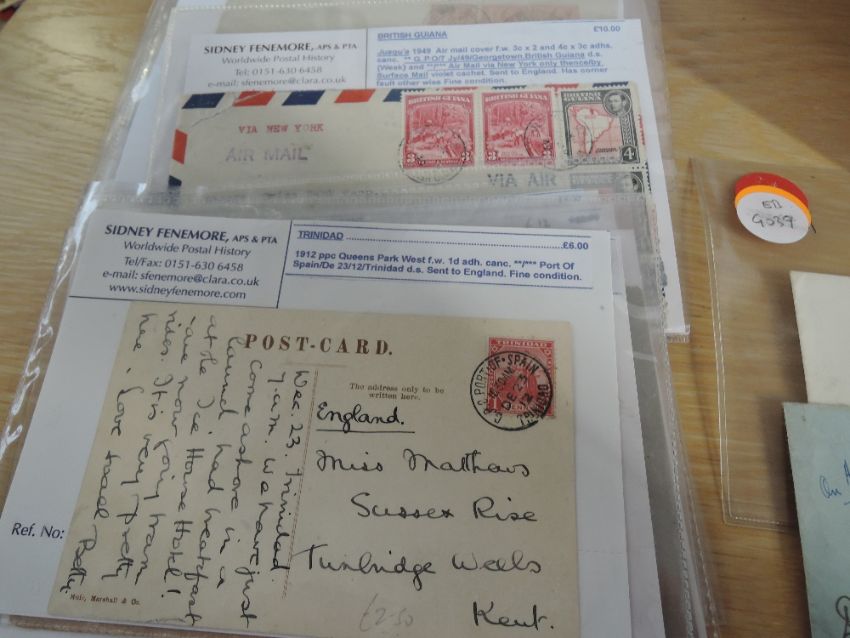 SIDNEY FENEMORE, APS & PTA
Worldwide Postal History
Tel: 0151-630 6458
e-mail: sfenemore@clara.co.uk
BRITISH GUIANA
£10.00
Jusqu'a 1949 Air mail cover f.w. 3c x 2 and 4c x 3c adhs.
canc. ** G P.O/7 Jy/49/Georgetown, British Guiana d.s.
(Weak) and **/*** Air Mail via New York only thence/by
Surface Mail violet cachet. Sent to England. Has corner
fault other wise Fine condition.
VIA NEW YORK
AIR MAIL
BRITISH GUIANA
3c
BRITISH GUIANA
3c
BRITISH GUIANA
4c
VIA AIR
SIDNEY FENEMORE, APS & PTA
Worldwide Postal History
Tel/Fax: 0151-630 6458
e-mail: sfenemore@clara.co.uk
www.sidneyfenemore.com
TRINIDAD £6.00
1912 ppc Queens Park West f.w. 1d adh. canc, **/*** Port Of
Spain/De 23/12/Trinidad d.s. Sent to England. Fine condition.
Ref. No:
POST-CARD.
The address only to be
written here.
TRINIDAD
G.P.O. PORT-OF-SPAIN
DE 23
12
TRINIDAD
England.
Miss Matthews
Sussex Rise
Tunbridge Wells
Kent.
£2.50
Dec. 23. Trinidad.
7 a.m. We have just
come ashore in a
launch, had breakfast
at the Ice House Hotel!
are now going tram
rides. It is very pretty
here. Love
Betty.
Muir, Marshall & Co.
EB
9039
On